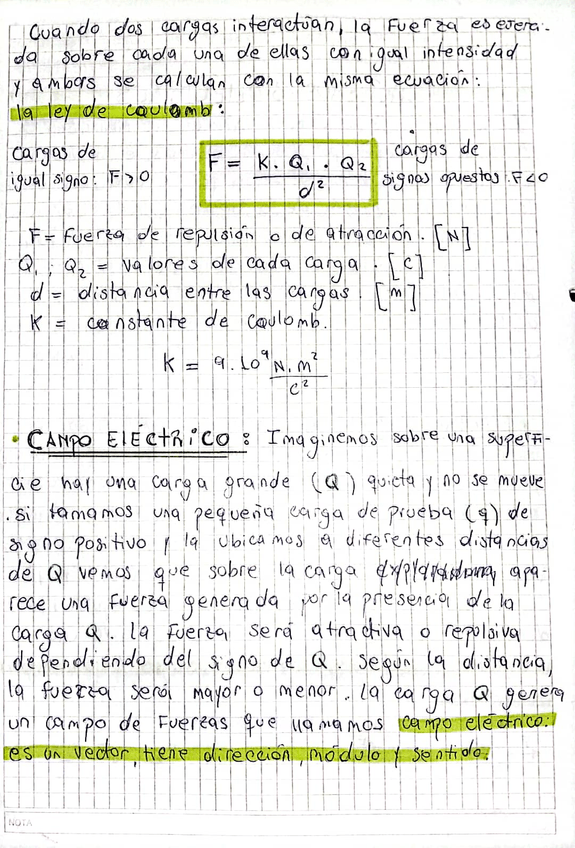 Cuando dos cargas interactúan, la Fuerza es ejerci-
da sobre cada una de ellas con igual intensidad
y ambas se calculan con la misma ecuación:
la ley de coulomb:
Cargas de
igual signo: F>0
F = K. Q₁ . Q₂ / d²
cargas de
signos opuestos: F<0
F = Fuerza de repulsión o de atracción. [N]
Q₁ ; Q₂ = valores de cada carga. [C]
d = distancia entre las cargas. [m]
K = constante de Coulomb.
K = 9.10⁹ N.m² / c²
• CAMPO ELÉCTRICO: Imaginemos sobre una superfi-
cie hay una carga grande (Q) quieta y no se mueve
.si tomamos una pequeña carga de prueba (q) de
signo positivo y la ubicamos a diferentes distancias
de Q vemos que sobre la carga apa-
rece una fuerza generada por la presencia de la
carga Q. la fuerza será atractiva o repulsiva
dependiendo del signo de Q. Según la distancia,
la fuerza será mayor o menor. la carga Q genera
un campo de Fuerzas que llamamos campo eléctrico.
es un vector, tiene dirección, módulo y sentido.
NOTA